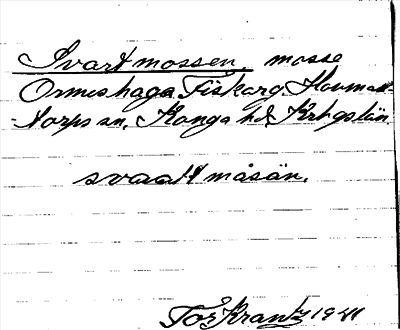 Svartmossen, mosse
Ormeshaga Fiskarg. Hovman-
-torps sn, Konga hd Krbgs län.
svaatt måsän.
Tor Krantz 1941